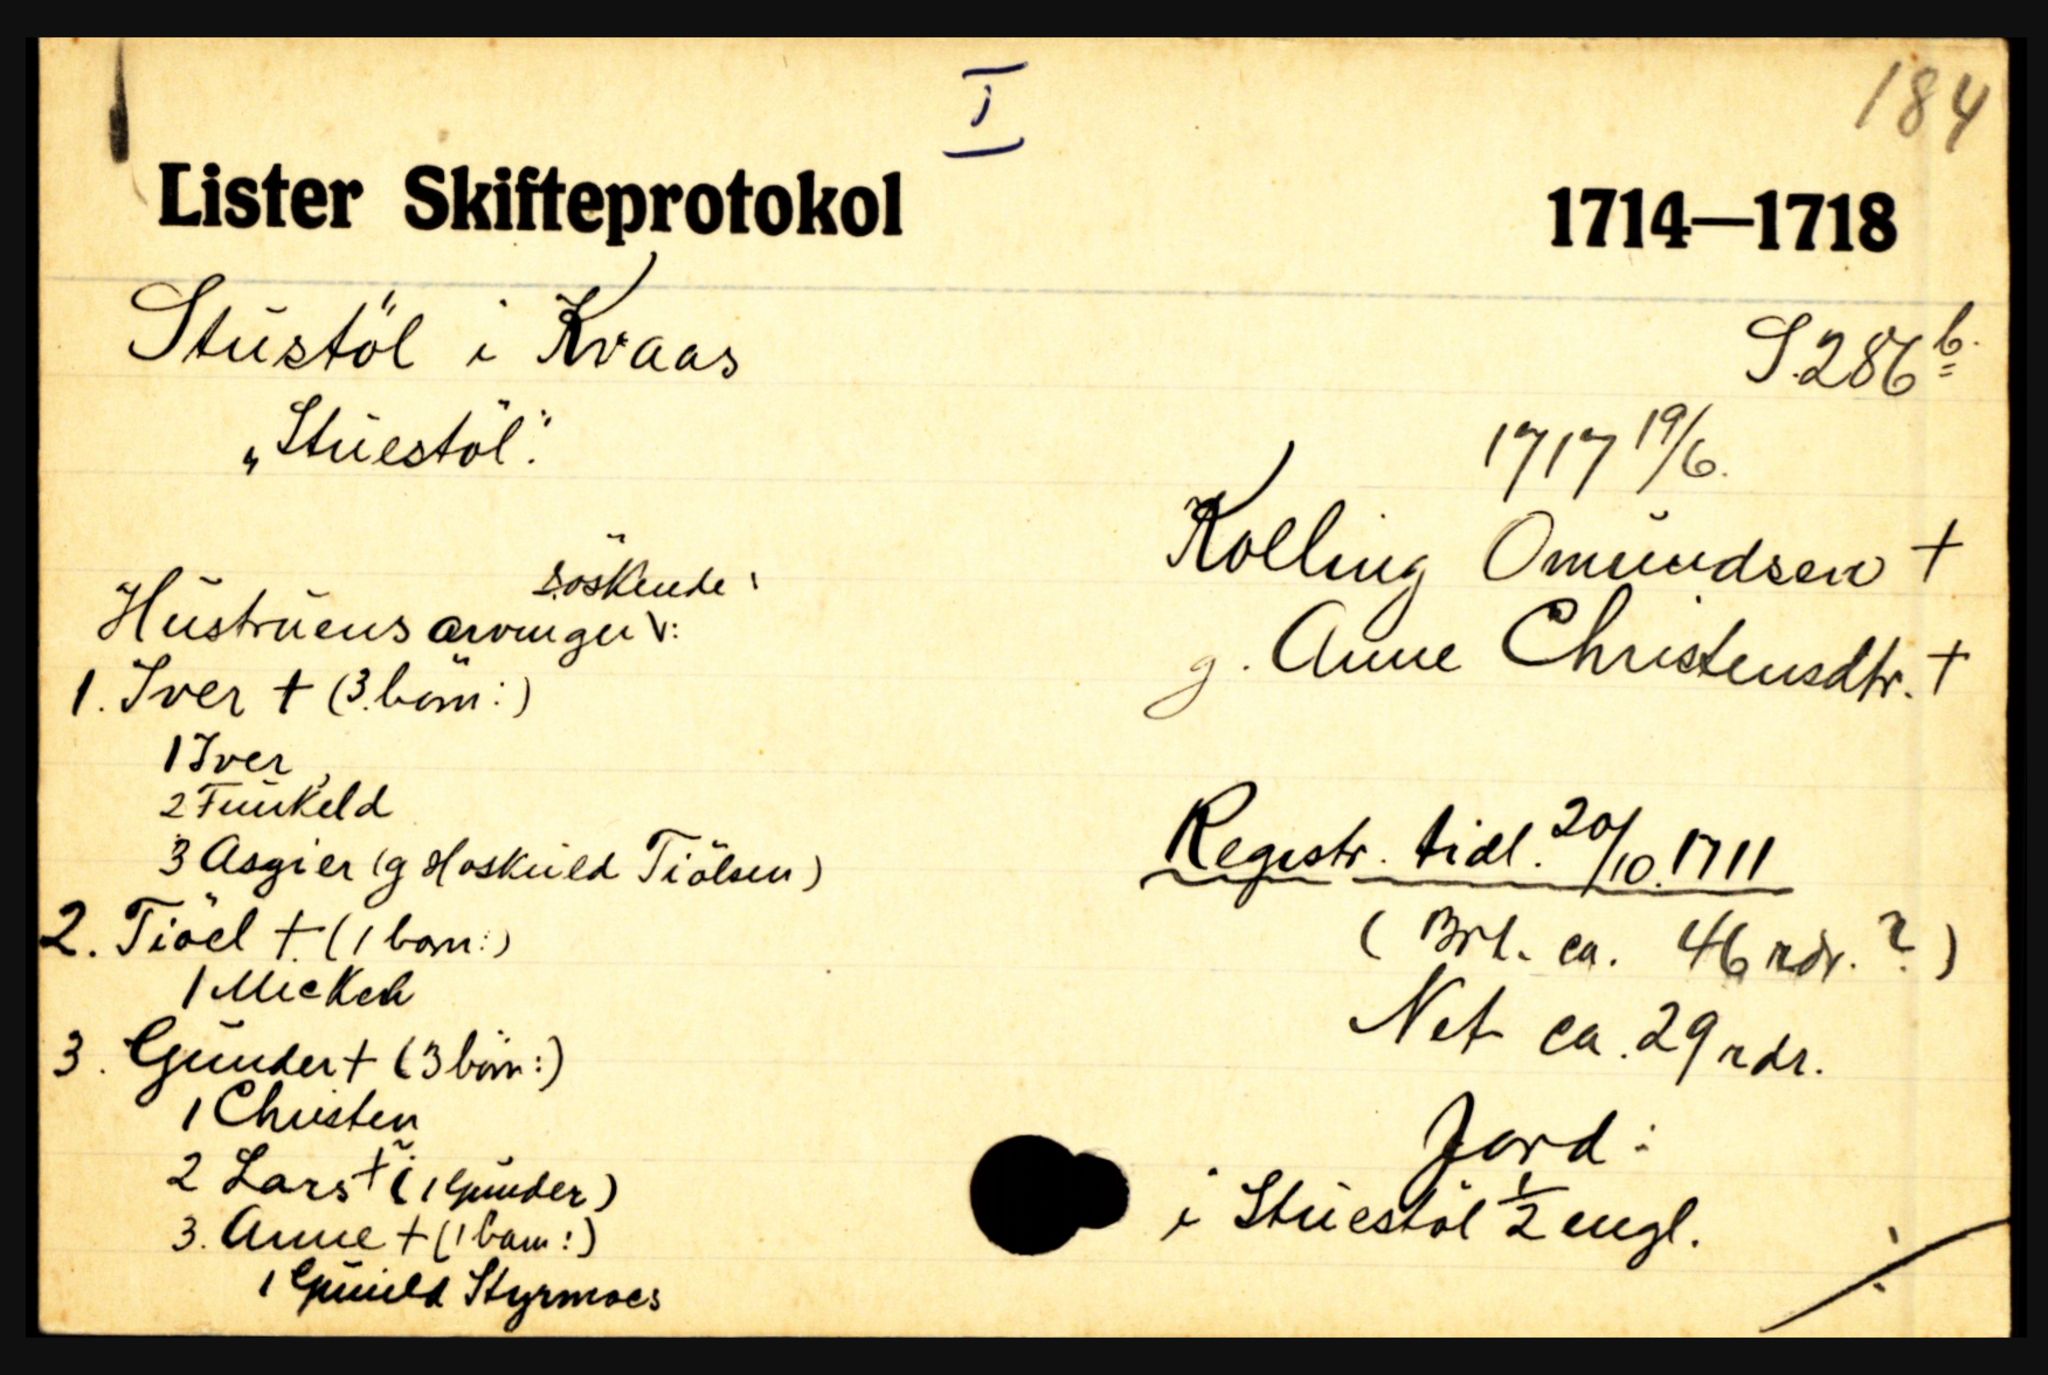 I
184
Lister Skifteprotokol 1714—1718
Stustöl i Kvaas
S. 286 b.
„Stuestöl".
1717 19/6.
Kolling Omundsen +
g. Anne Christensdtr. +
söskende
Hustruens arvinger:
1. Iver + (3 börn:)
1 Iver
2 Funkeld
3 Asgier (g Hoskuld Tiölsen)
2. Tiöel + (1 barn:)
1 Mickel
3. Gunder + (3 börn:)
1 Christen
2 Lars + (1 Gunder)
3. Anne + (1 barn:)
1 Gunild Styrmoes
Registr. tidl. 20/10. 1711
(Brt. ca. 46 rdr. ?)
Net ca. 29 rdr.
Jord:
i Stuestöl 1/2 engl.